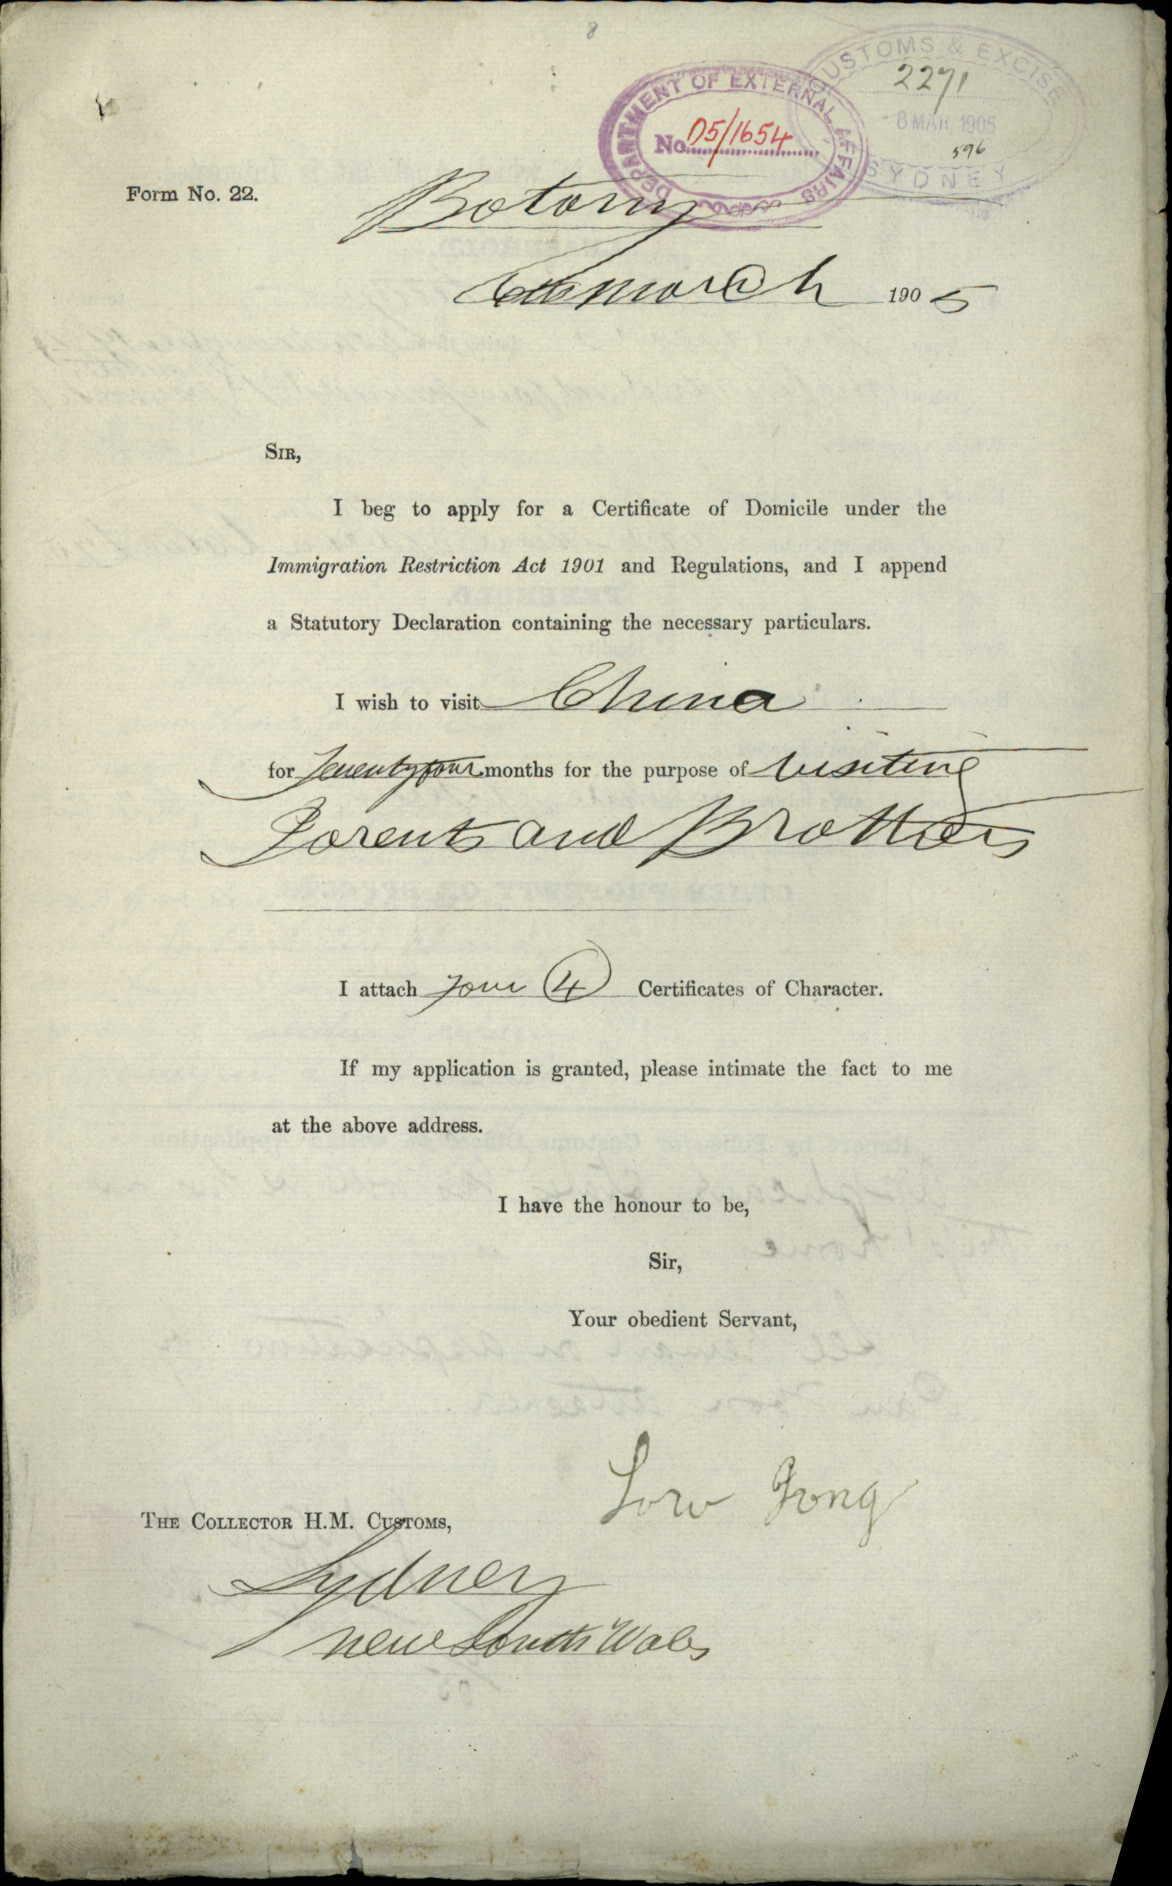 8
CUSTOMS & EXCISE
2271
8 MAR 1905
596
SYDNEY
DEPARTMENT OF EXTERNAL AFFAIRS
No. 05/1654
Form No. 22.
Botany
6th March 1905
SIR,
I beg to apply for a Certificate of Domicile under the
Immigration Restriction Act 1901 and Regulations, and I append
a Statutory Declaration containing the necessary particulars.
I wish to visit China
for months for the purpose of visiting
Parents and Brothers
I attach four (4) Certificates of Character.
If my application is granted, please intimate the fact to me
at the above address.
I have the honour to be,
Sir,
Your obedient Servant,
Low Fong
THE COLLECTOR H.M. CUSTOMS,
Sydney
New South Wales